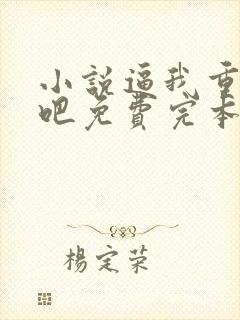 小説逼我重
吧免費完本
楊定荣